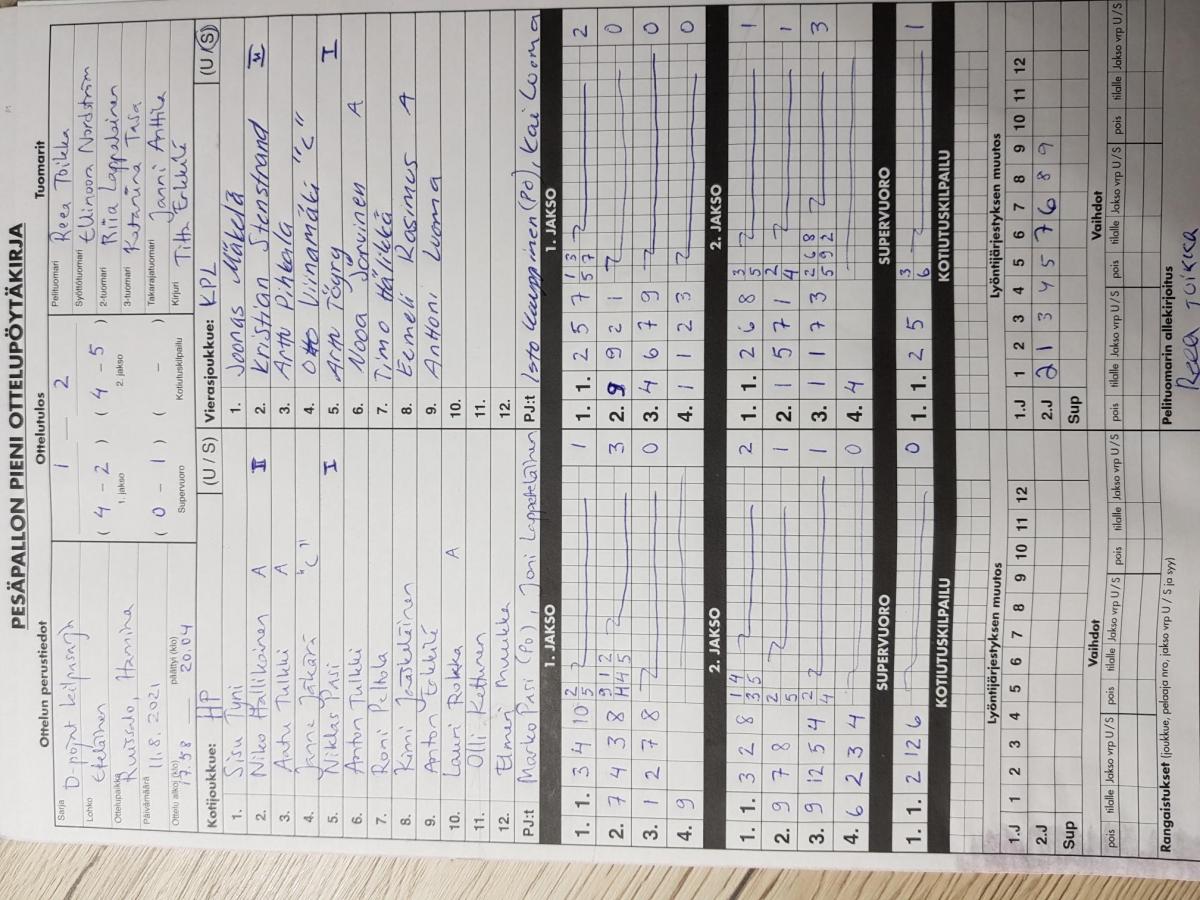 PESÄPALLON PIENI OTTELUPÖYTÄKIRJA
Ottelun perustiedot
Sarja D-pojat
Lohko Eteläinen
Ottelupaikka Ruissalo, Hamina
Päivämäärä 11.8.2021
Ottelu alkoi (klo) 17.58 päättyi (klo) 20.04
Ottelutulos
1 — 2
( 4 - 2 ) ( 4 - 5 )
1. jakso 2. jakso
( 0 - 1 ) ( - )
Supervuoro Kotiutuskilpailu
Tuomarit
Pelituomari Reea Toikka
Syöttötuomari Ellinoora Nordström
2-tuomari Riia Lappalainen
3-tuomari Katariina Tasa
Takarajatuomari Janni Anttila
Kirjuri Titta Erkkilä
Kotijoukkue: HP (U / S)
1. Sisu Tyni
2. Niko Hallikainen A II
3. Antu Tulkki A
4. Janne Jäkärä "C"
5. Niklas Pusi I
6. Anton Tulkki
7. Roni Peltola
8. Kimi Jääskeläinen
9. Anton Erkkilä
10. Lauri Rokka A
11. Olli Kettunen
12. Elmeri Muukka
PJ:t Marko Pusi (PO), Joni Lappeteläinen
Vierasjoukkue: KPL (U / S)
1. Joonas Mäkelä
2. Kristian Stenstrand II
3. Arttu Pihkala
4. Otto Viinamäki "C"
5. Arttu Töyry I
6. Nooa Jorvinen A
7. Timo Hällikkä
8. Eemeli Rasimus A
9. Anttoni Luoma
10.
11.
12.
PJ:t Isto Kauppinen (PO), Kai Luoma
1. JAKSO 1. JAKSO
1. 1. 3 4 10 2 5 1
2. 7 4 3 8 9 1 2 11 4 5 3
3. 1 2 7 8 0
4. 9
1. 1. 2 5 7 1 3 5 7 2
2. 9 9 2 1 0
3. 4 6 7 9 0
4. 1 1 2 3 0
2. JAKSO 2. JAKSO
1. 1. 3 2 8 1 4 3 5 2
2. 9 7 8 2 5 1
3. 9 12 5 4 2 4 1
4. 6 2 3 4 0
1. 1. 2 6 8 3 5 1
2. 1 5 7 1 2 4 1
3. 1 1 7 3 2 6 8 5 9 2 3
4. 4
SUPERVUORO SUPERVUORO
1. 1. 2 12 6 0
1. 1. 2 5 3 6 1
KOTIUTUSKILPAILU KOTIUTUSKILPAILU
Lyöntijärjestyksen muutos
1.J 1 2 3 4 5 6 7 8 9 10 11 12
2.J
Sup
Lyöntijärjestyksen muutos
1.J 1 2 3 4 5 6 7 8 9 10 11 12
2.J 2 1 3 4 5 7 6 8 9
Sup
Vaihdot
pois tilalle Jakso vrp U / S pois tilalle Jakso vrp U / S pois tilalle Jakso vrp U / S
Vaihdot
pois tilalle Jakso vrp U / S pois tilalle Jakso vrp U / S pois tilalle Jakso vrp U / S
Rangaistukset (joukkue, pelaaja nro, jakso vrp U / S ja syy)
Pelituomarin allekirjoitus
REEA TOIKKA